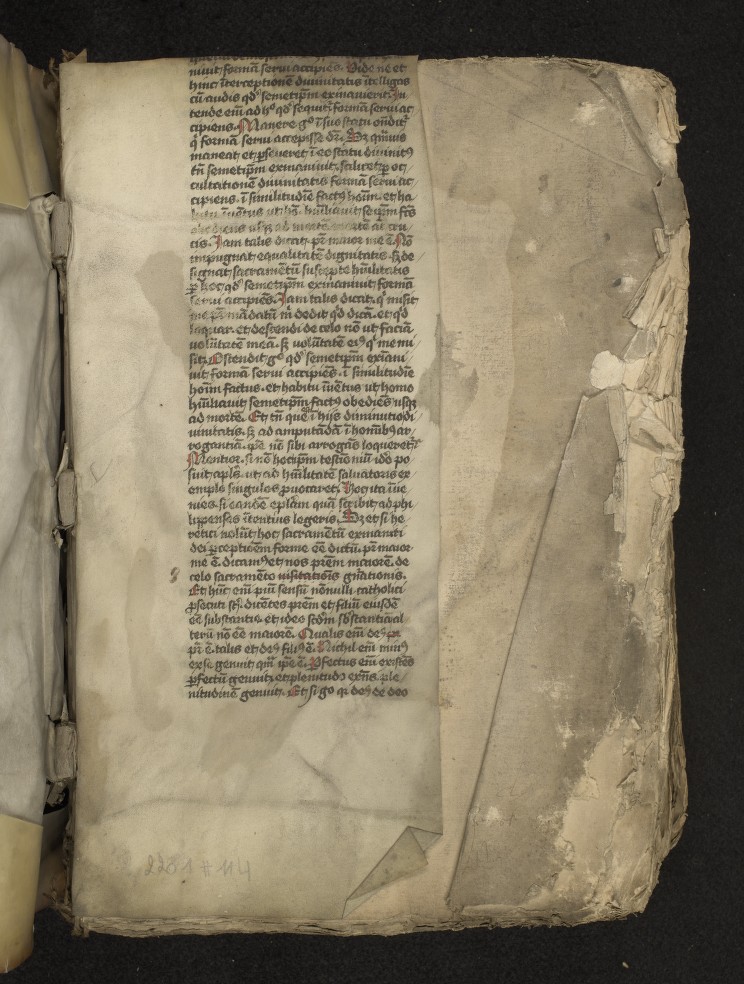 niuit formā serui accipiēs. Vide ne et
hinc īterceptionē diuinitatis ītelligas
cū audis qd' semetip̄m exinaniuerit. In
tende em̄ ad hoͦ qd' sequit' formā serui ac
cipiens. Manere gͦ ī suo statu ondit'
formā serui accepisse dr̄. Sz qmuis
maneat et ꝑseueret ī eo statu diuinitꝰ
tn̄ semetip̄m exinaniuit. scilicet ꝑ oc/
cultationē diuinitatis formā serui ac/
cipiens. ī similitudīe factꝰ hoīm. et ha
bitu īuētus ut hō. hūiliauit seip̄m fcs̄
obediens usqz ad mortē mortē at cru
cis. Jam talis dicat. pr̄ maior me ē. Nō
impugnat equalitatē dignitatis. sz de
signat sacramētū suscepte hūilitatis
ꝑ hoc qd' semetip̄m exinaniuit formā
serui accipiēs. Jam talis dicit. qͥ misit
me pr̄ mādatū m̄ dedit qd' dicā. et qd'
loquar. et descendi de celo nō ut faciā
volūtatē meā. sz volūtatē eiꝰ qͥ me mi
sit. Ostendit gͦ qd' semetip̄m exīani/
uit formā serui accipiēs. ī similitudīe
hoīm factus. et habitu īuētus ut homo
hūiliauit semetip̄m factꝰ obediēs usqz
ad mortē. Et tn̄ que ī hijs diminutio di/
uinitatis. sz ad amputādā ī hoībꝰ ar/
rogantiā. ip̄e nō sibi arrogās loqueret'
Mentior. si nō hoc ip̄m testiōniū ideo po
suit apl's. ut ad hūilitatē saluatoris ex
emplo singulos ꝓuocaret. Hoc ita īue
nies. si eandē ep̄lam quā scͥbit ad phi
lippenses ītentius legeris. Sz et si he
retici nolūt hoc sacramētū exinaniti
dei ꝑ ceptiōem forme eē dictū. pr̄ maior
me ē. dicamꝰ et nos prēm maiorē. de
celo sacramēto uisitatiōis gn̄ationis.
Et hīc em̄ piū sensū nōnulli catholici
ꝓsecuti st'. dicētes prēm et filiū eiusdē
eē substantie. et ideo scd̄m sbstantiā al
terū nō eē maiorē. Qualis em̄ deꝰ
pr̄ ē. talis et deꝰ filiꝰ ē. Nichil em̄ minꝰ
ex se genuit qm̄ ip̄e ē. Perfectus em̄ existēs
ꝑfectū genuit. et plenitudo exn̄s. ple/
nitudinē genuit. Et si gͦ qr deꝰ de deo
2201 # 114